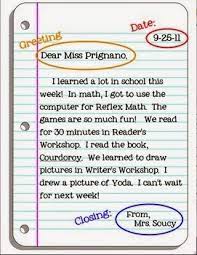 Greeting
Date:
9-26-11
Dear Miss Prignano,
I learned a lot in school this
week! In math, I got to use the
computer for Reflex Math. The
games are so much fun! We read
for 30 minutes in Reader's
Workshop. I read the book,
Courdoroy. We learned to draw
pictures in Writer's Workshop. I
drew a picture of Yoda. I can't wait
for next week!
Closing:
From,
Mrs. Soucy